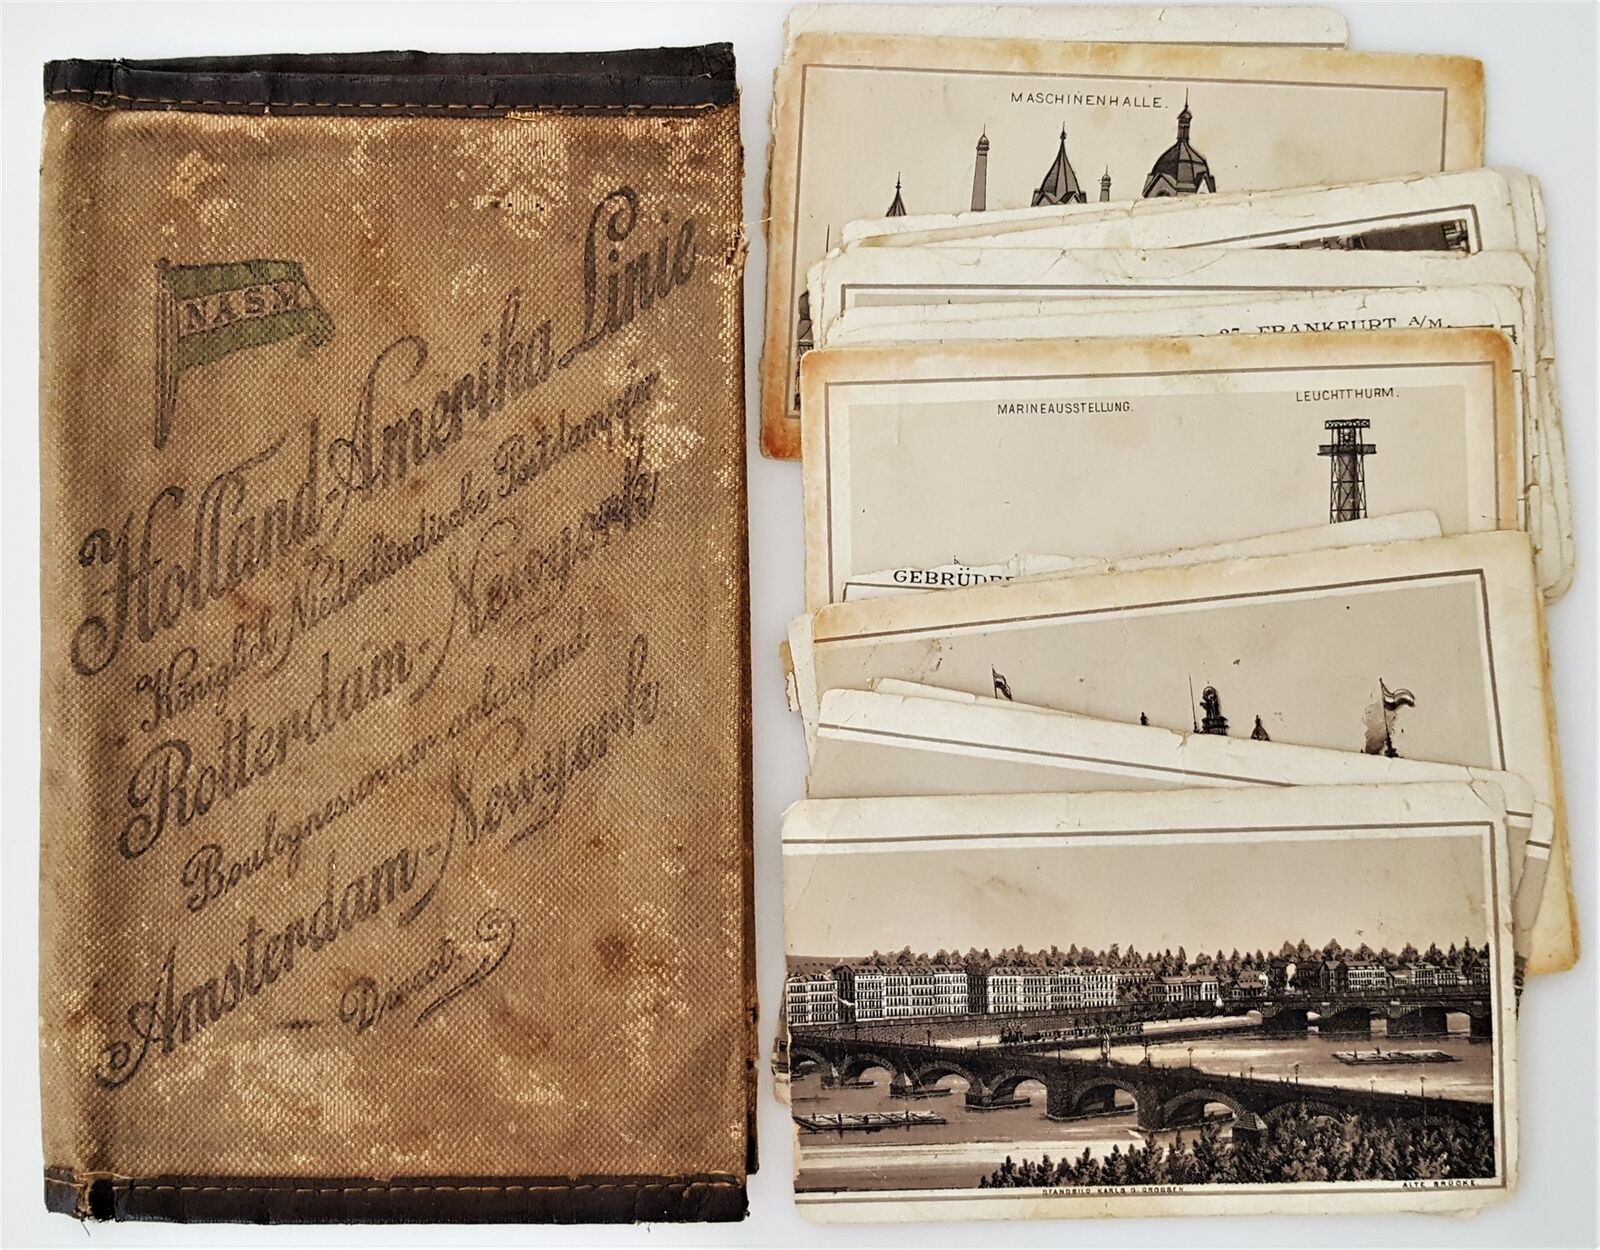 N.A.S.M.
Holland-Amerika Linie
Königlich Niederländische Postdampfer
Rotterdam-Newyork
Boulognesurmer anlaufend
Amsterdam-Newyork
Direct.
MASCHINENHALLE.
27. FRANKFURT A/M.
MARINEAUSSTELLUNG.
LEUCHTTHURM.
GEBRÜDER
STANDBILD KARLS D. GROSSEN
ALTE BRÜCKE.